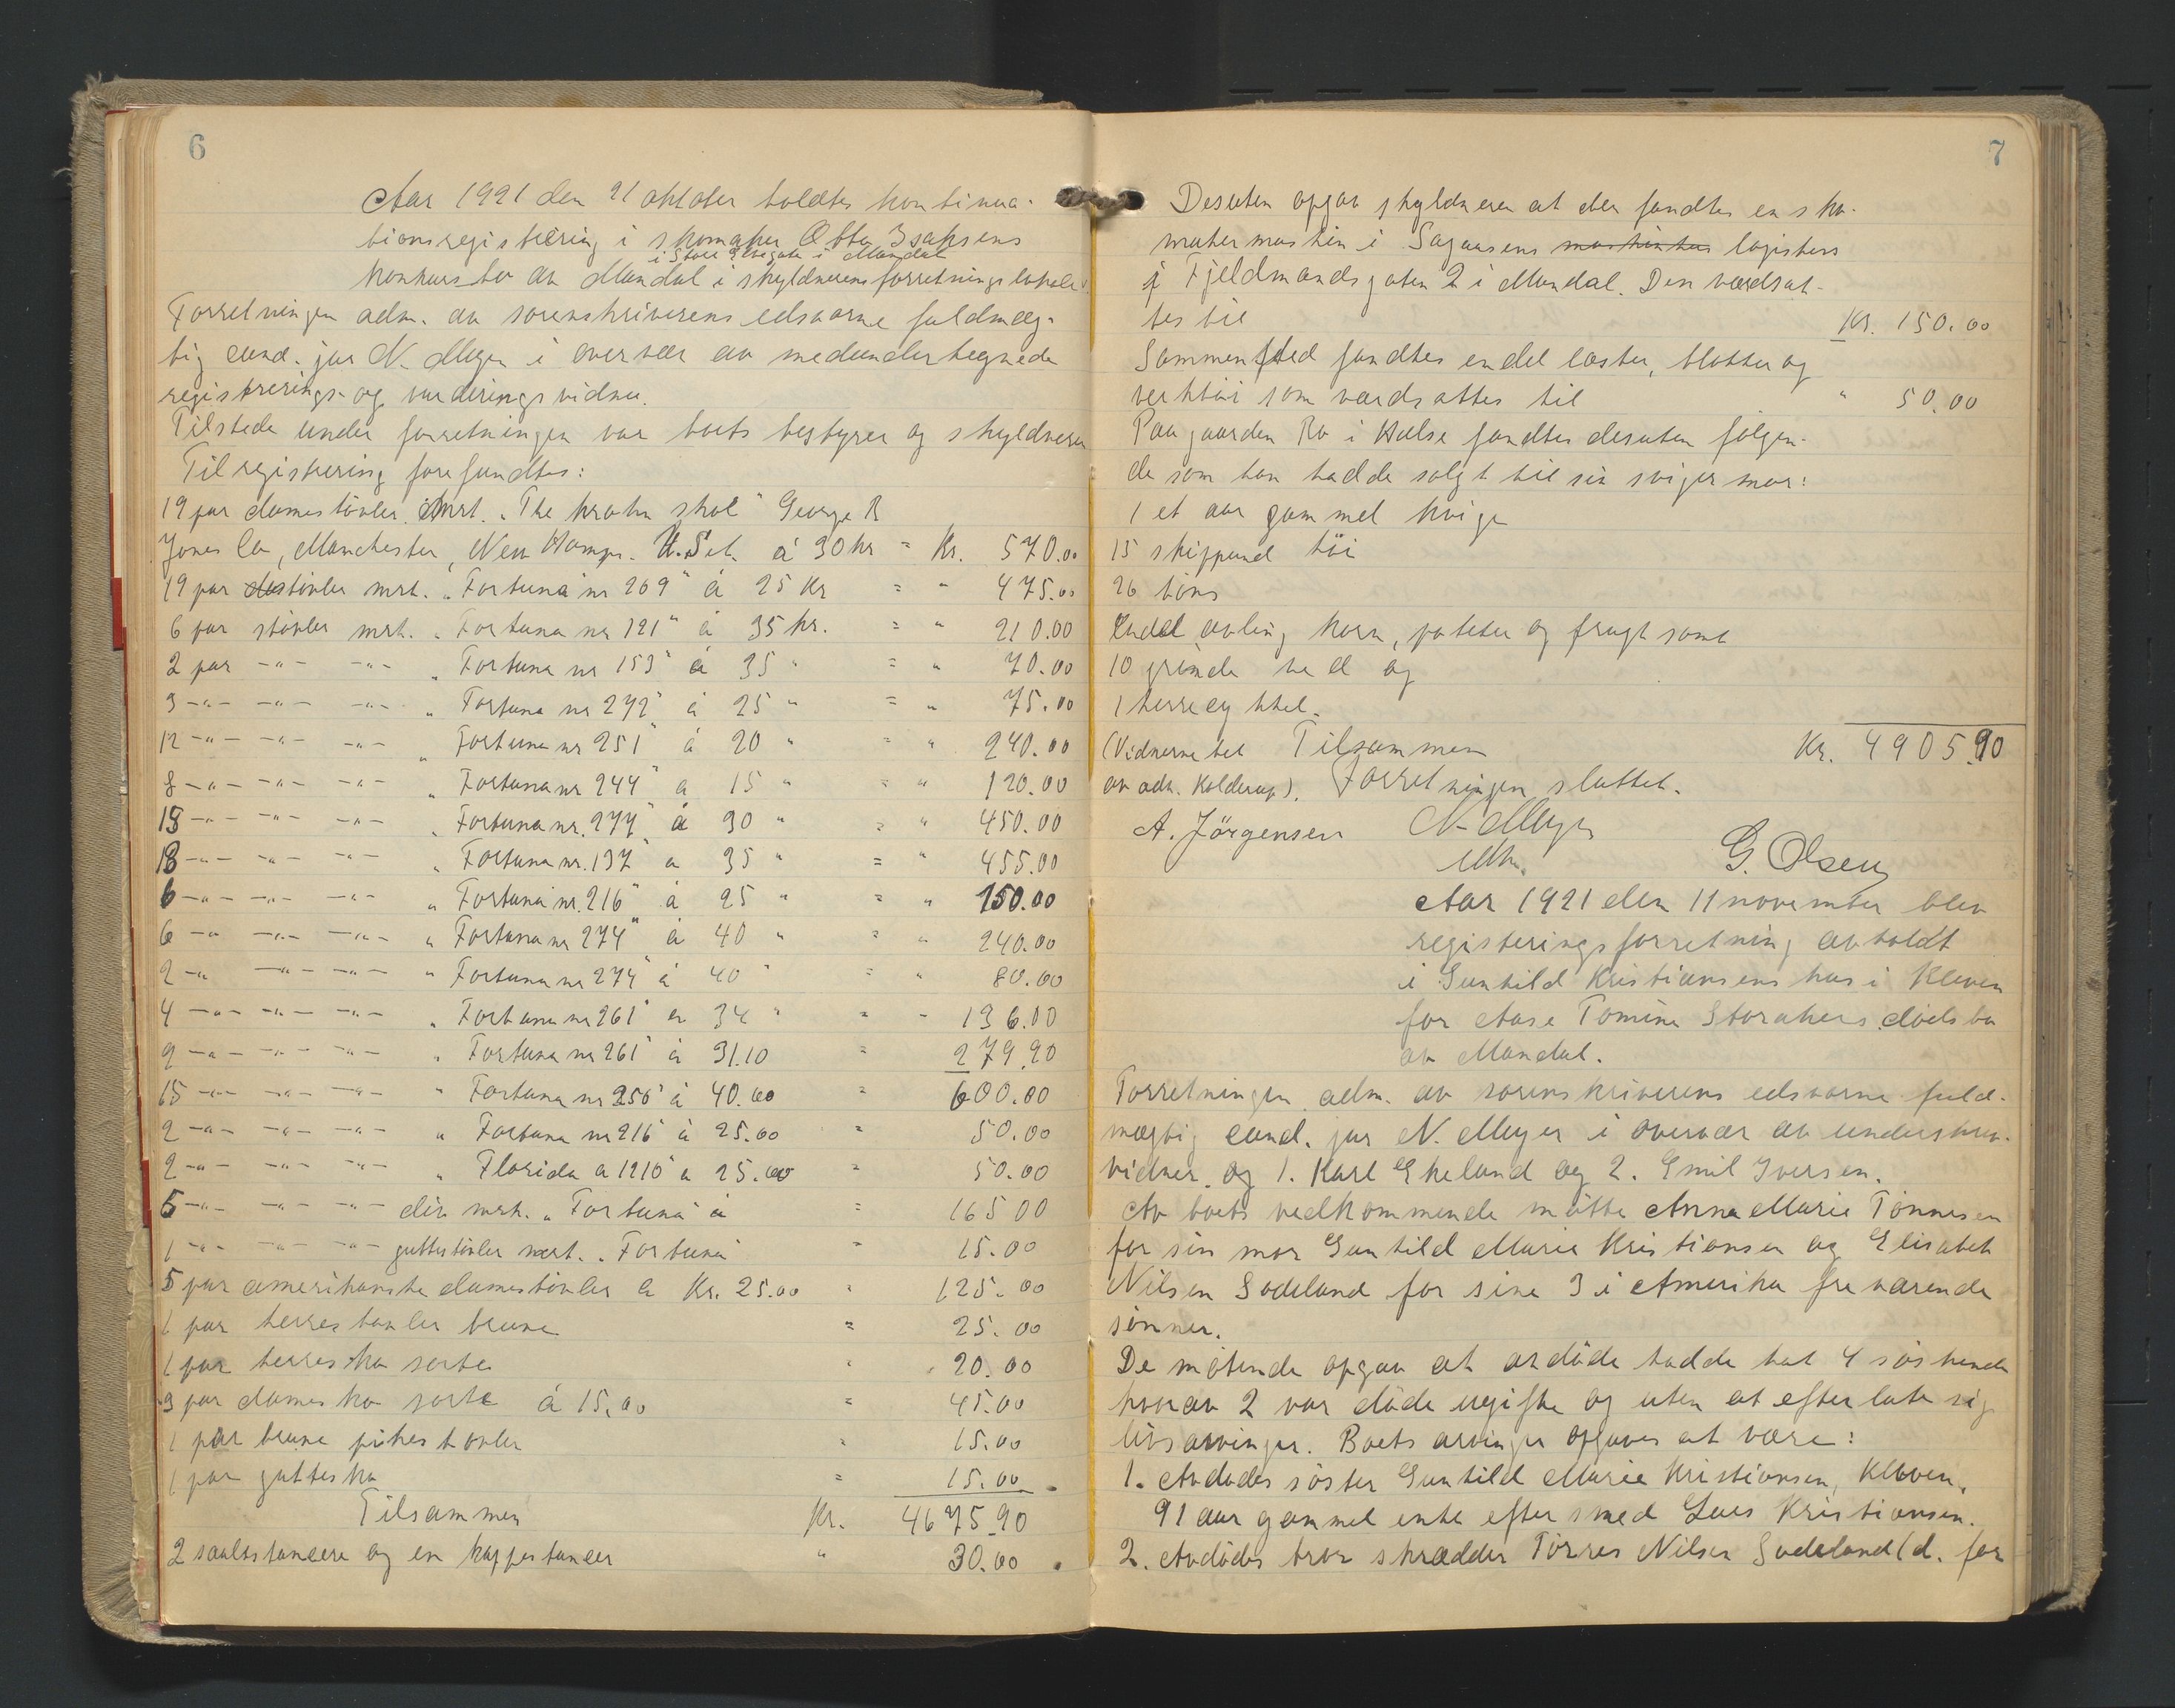 6
Aar 1921 den 21 oktober holdtes kontinua-
tionsregistrering i skomaker Otto Isaksens
i Store Elvegate i Mandal
konkursbo av Mandal i skyldnerens forretningslokale.
Forretningen adm. av sorenskriverens edsvorne fuldmæg-
tig cand. jur N. Meyer i overvær av medundertegnede
registrerings- og vurderingsvidner.
Tilstede under forretningen var boets bestyrer og skyldneren
Til registrering forefandtes:
19 par damestövler mrt. "The krohn shoe" George R
Jones Co, Manchester, New Hamps. U.S.A. á 30 kr = Kr. 570.00
19 par støvler mrk. "Fortuna nr 269" á 25 Kr = " 475.00
6 par stövler mrk. "Fortuna nr 121" á 35 kr. = " 210.00
2 par -"- -"- "Fortuna nr 153" á 35 " = " 70.00
3 -"- -"- -"- "Fortuna nr 272" á 25 " = " 75.00
12 -"- -"- -"- "Fortuna nr 251" á 20 " = " 240.00
8 -"- -"- -"- "Fortuna nr 244" a 15 " = " 120.00
15 -"- -"- -"- "Fortuna nr. 277" á 30 " = " 450.00
13 -"- -"- -"- "Fortuna nr. 137" a 35 " = " 455.00
6 -"- -"- -"- "Fortuna nr. 216" á 25 " = " 150.00
6 -"- -"- -"- "Fortuna nr 274" á 40 " = " 240.00
2 -"- -"- -"- "Fortuna nr 274" á 40 " = " 80.00
4 -"- -"- -"- "Fortuna nr 261" a 34 " = " 136.00
9 -"- -"- -"- "Fortuna nr 261" á 31.10 = 279.90
15 -"- -"- -"- "Fortuna nr 256" á 40.00 = 600.00
2 -"- -"- -"- "Fortuna nr 216" á 25.00 = 50.00
2 -"- -"- -"- "Florida a 1210" a 25.00 = 50.00
5 -"- -"- -"- div mrk. "Fortuna" á = 165 00
1 -"- -"- -"- guttestövler mrk. "Fortuna" 15.00
5 par amerikanske damestövler a Kr. 25.00 " 125.00
1 par herrestövler brune = 25.00
1 par herresko sorte " 20.00
3 par damesko sorte á 15.00 = 45.00
1 par brune pikestövler " 15.00
1 par guttesko = 15.00
Tilsammen Kr. 4675.90
2 saalestansere og en kappestanser " 30.00
7
Desuten opgav skyldneren at der fandtes en sko-
makermaskin i Sagaasens maskinhus logishus
i Fjeldmandsgaten 2 i Mandal. Den værdsat-
tes til Kr. 150.00
Sammensted fandtes endel læster, blokker og
verktöi som værdsattes til " 50.00
Paa gaarden Ro i Halse fandtes desuten fölgen-
de som han hadde solgt til sin svigermor:
1 et aar gammel kvige
15 skippund höi
26 höns
Endel avling korn, poteter og frugt samt
10 grinde ved og
1 herrecykkel.
(Vidnerne bet Tilsammen Kr. 4905.90
av adv. Kolderup). Forretningen sluttet.
A. Jörgensen N. Meyer
G. Olsen
Aar 1921 den 11 november blev
registeringsforretning avholdt
i Gunhild Kristiansens hus i Kleven
for Aase Tomine Storakers dödsbo
av Mandal.
Forretningen adm. av sorenskriverens edsvorne fuld-
mægtig cand. jur N. Meyer i overvær av underskrevne
vidner og 1. Karl Ekeland og 2. Emil Iversen.
Av boets vedkommende mötte Anna Marie Tönnesen
for sin mor Gunhild Marie Kristiansen og Elisabeth
Nilsen Sodeland for sine 3 i Amerika fraværende
sönner.
De mötende opgav at avdöde hadde hat 4 söskende
hvorav 2 var döde ugifte og uten at efterlate sig
livsarvinger. Boets arvinger opgaves at være:
1. Avdödes söster Gunhild Marie Kristiansen, Kleven,
91 aar gammel enke efter smed Lars Kristiansen.
2. Avdödes bror skrædder Törres Nilsen Sodeland (d. for